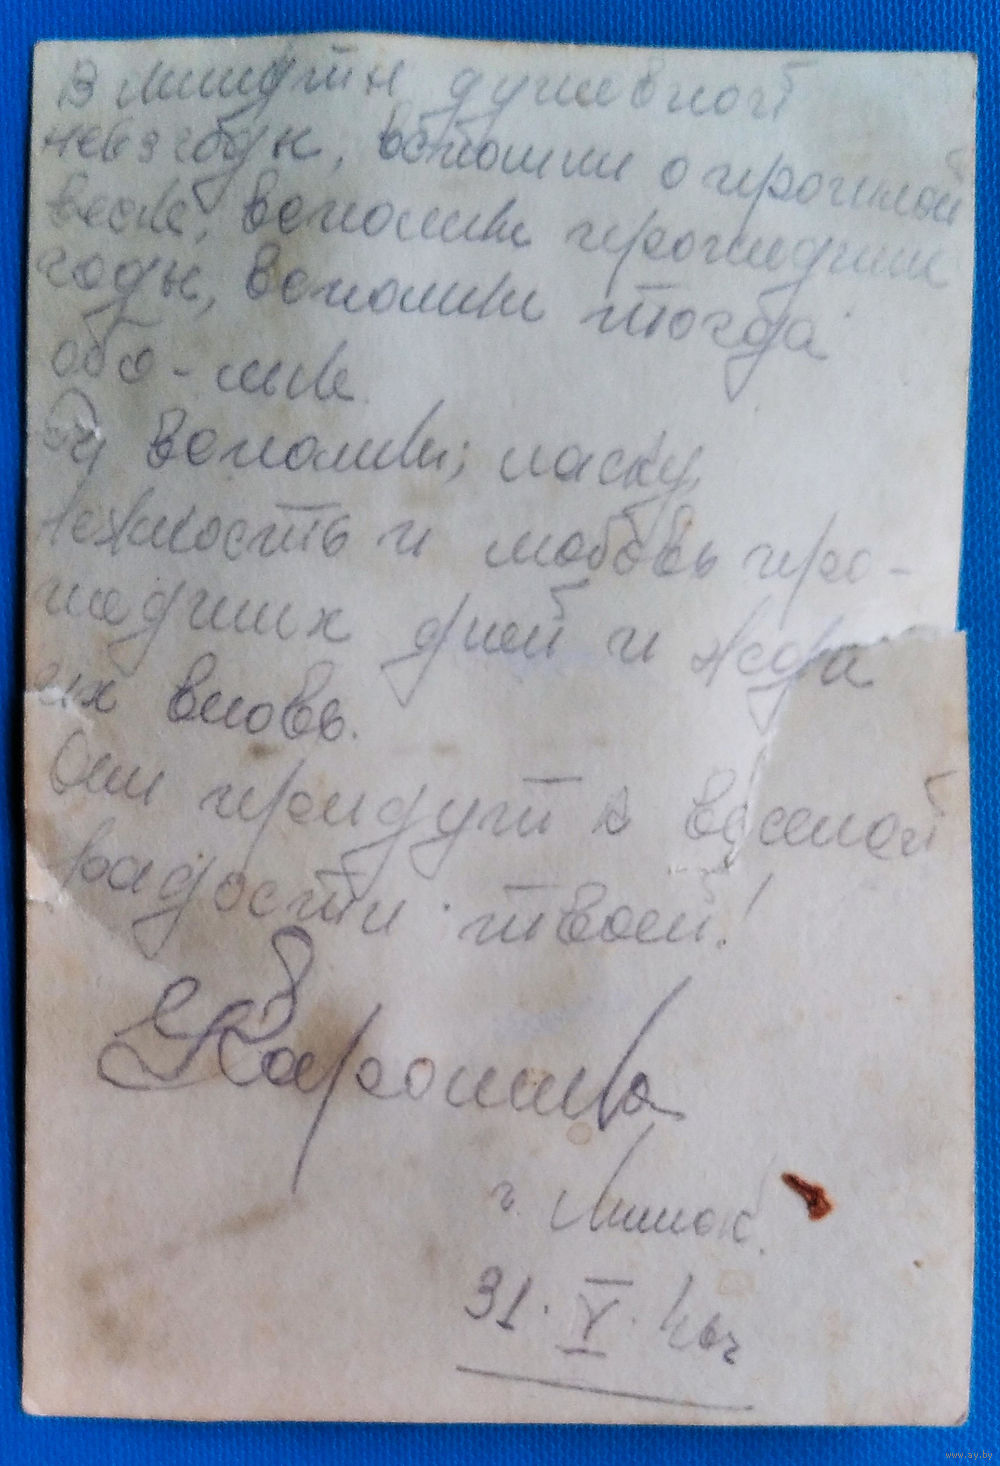 В минуты душевной
невзгоды, вспомни о прошлой
весне, вспомни прошедшие
годы, вспомни тогда
обо-мне
вспомни, ласку,
нежность и любовь про-
шедших дней и жди
их вновь.
Они придут в весенней
радости твоей!
г. Минск.
31. V. 46г
www.ay.by